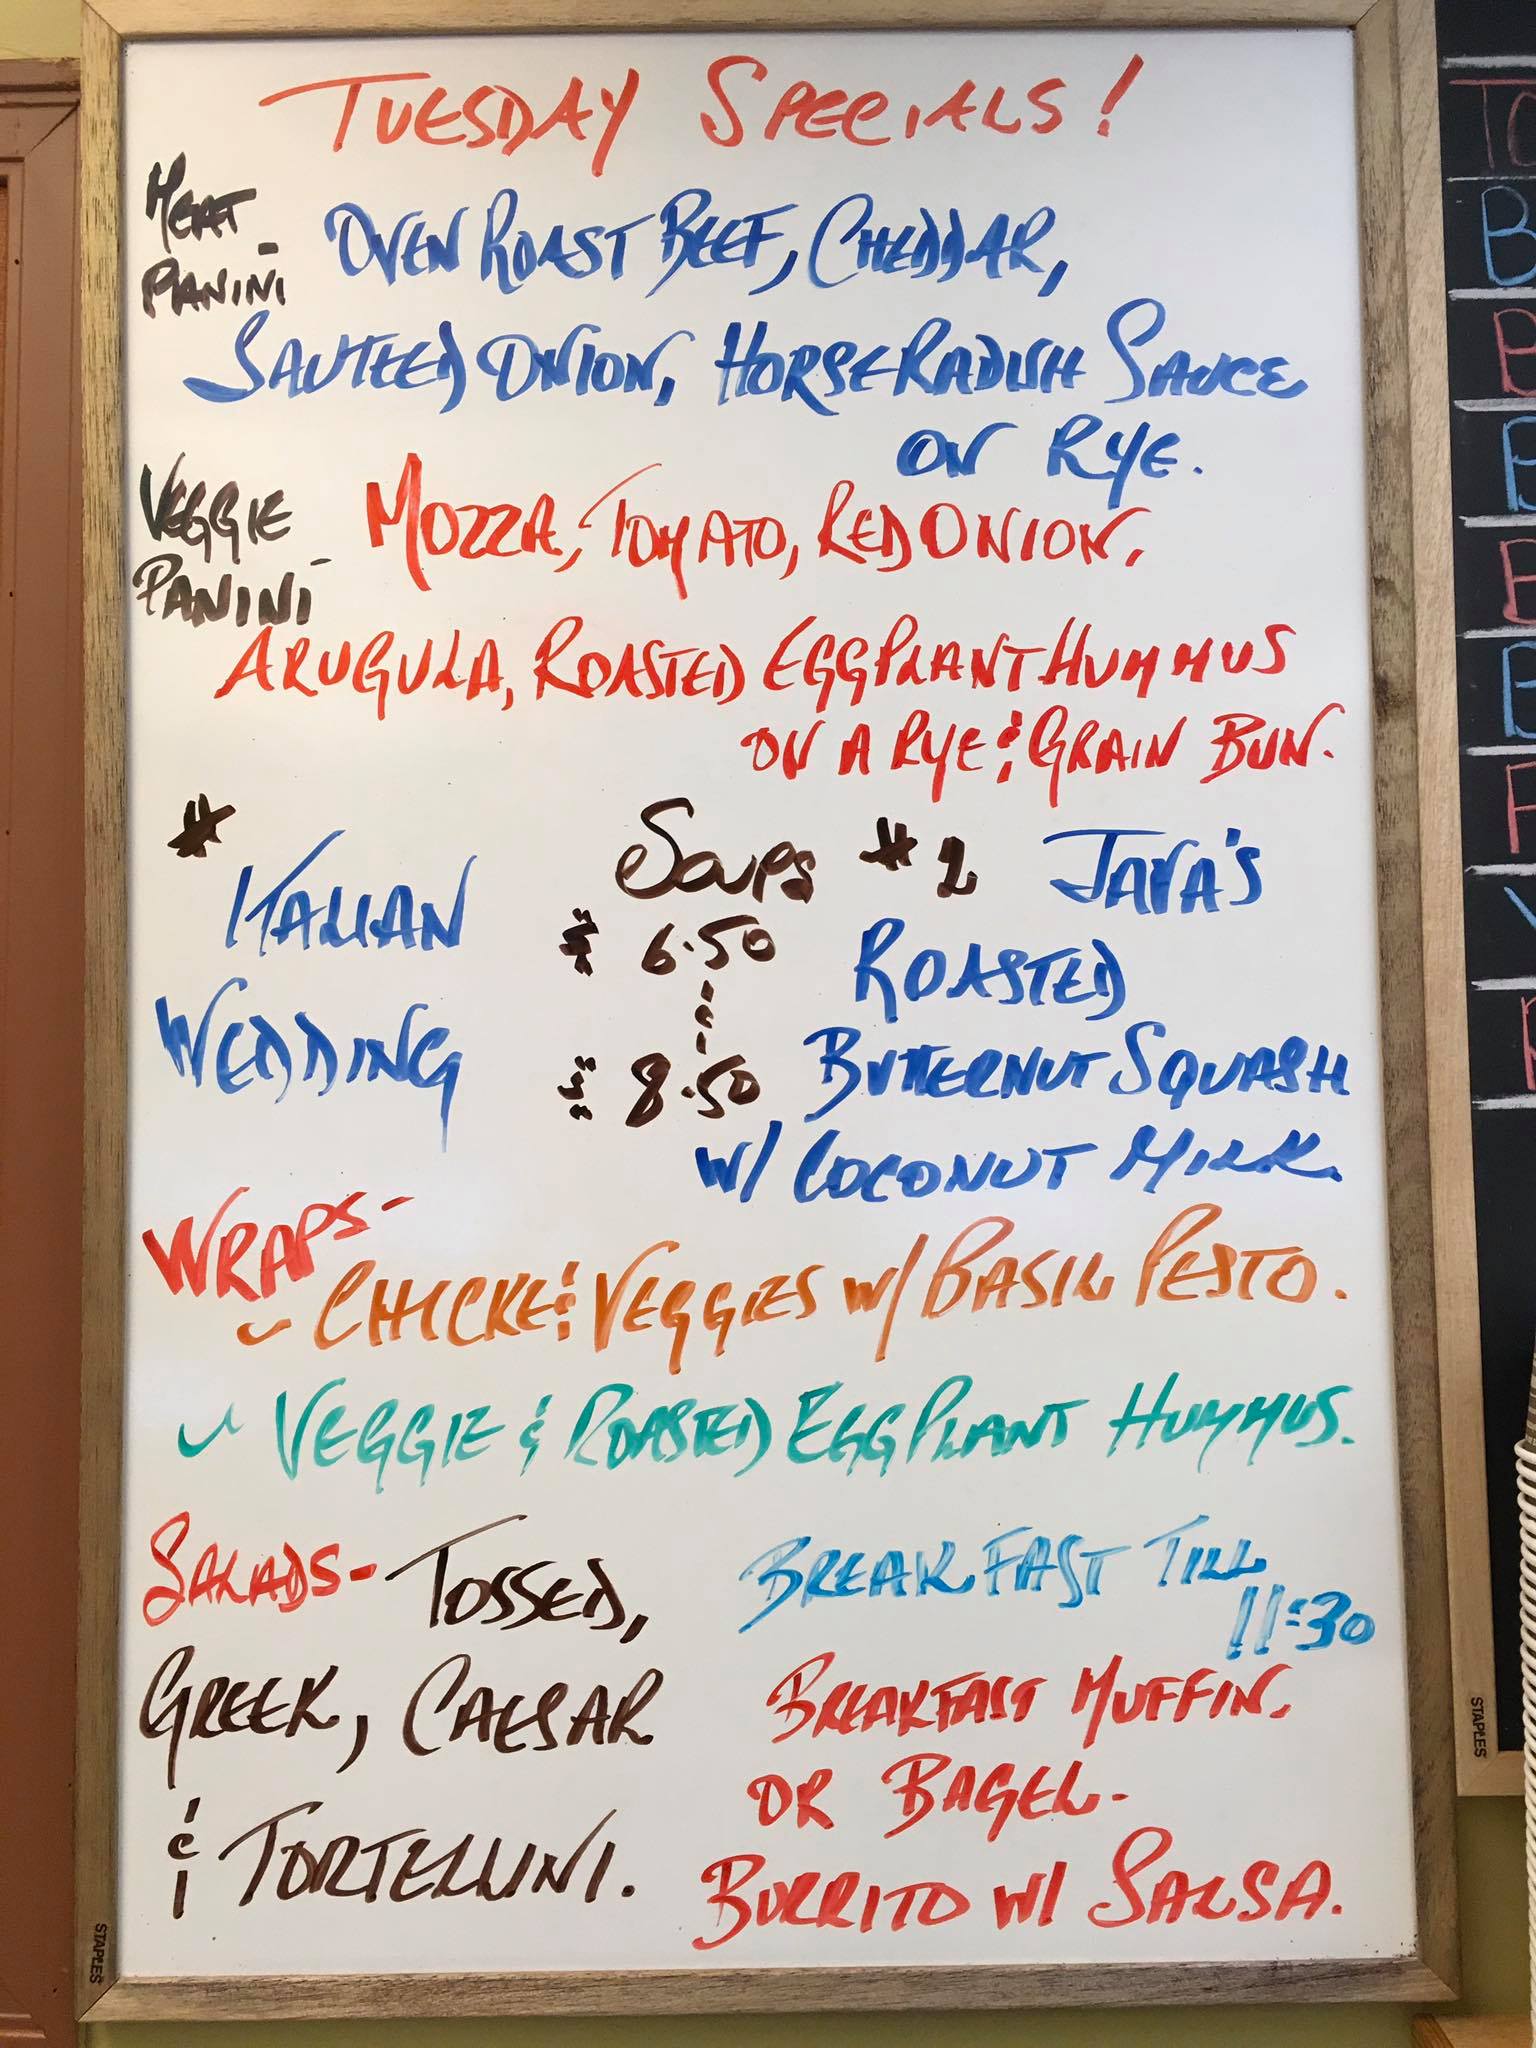 TUESDAY SPECIALS!
MEAT PANINI - OVEN ROAST BEEF, CHEDDAR,
SAUTEED ONION, HORSERADISH SAUCE
ON RYE.
VEGGIE PANINI - MOZZA, TOMATO, RED ONION,
ARUGULA, ROASTED EGGPLANT HUMMUS
ON A RYE & GRAIN BUN.
#
ITALIAN
WEDDING
SOUPS
$ 6.50
&
$ 8.50
# 2 JAVA'S
ROASTED
BUTTERNUT SQUASH
W/ COCONUT MILK.
WRAPS-
~ CHICKE & VEGGIES W/ BASIL PESTO.
~ VEGGIE & ROASTED EGGPLANT HUMMUS.
SALADS- TOSSED,
GREEK, CAESAR
& TORTELLINI.
BREAKFAST TILL
11:30
BREAKFAST MUFFIN,
OR BAGEL-
BURRITO W/ SALSA.
STAPLES
STAPLES